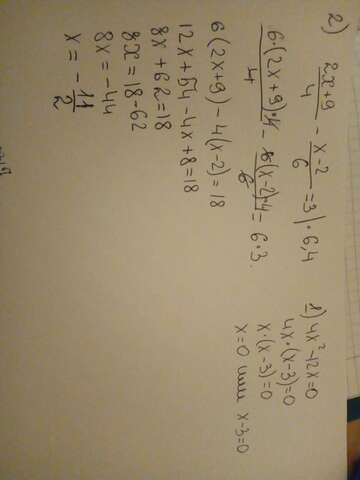 2) (2x+9)/4 - (x-2)/6 = 3 | · 6,4
6·(2x+9)·4/4 - 6(x-2)·4/6 = 6·3.
6(2x+9) - 4(x-2) = 18
12x+54-4x+8=18
8x+62=18
8x=18-62
8x=-44
x = -11/2
1) 4x²-12x=0
4x·(x-3)=0
x·(x-3)=0
x=0 или x-3=0